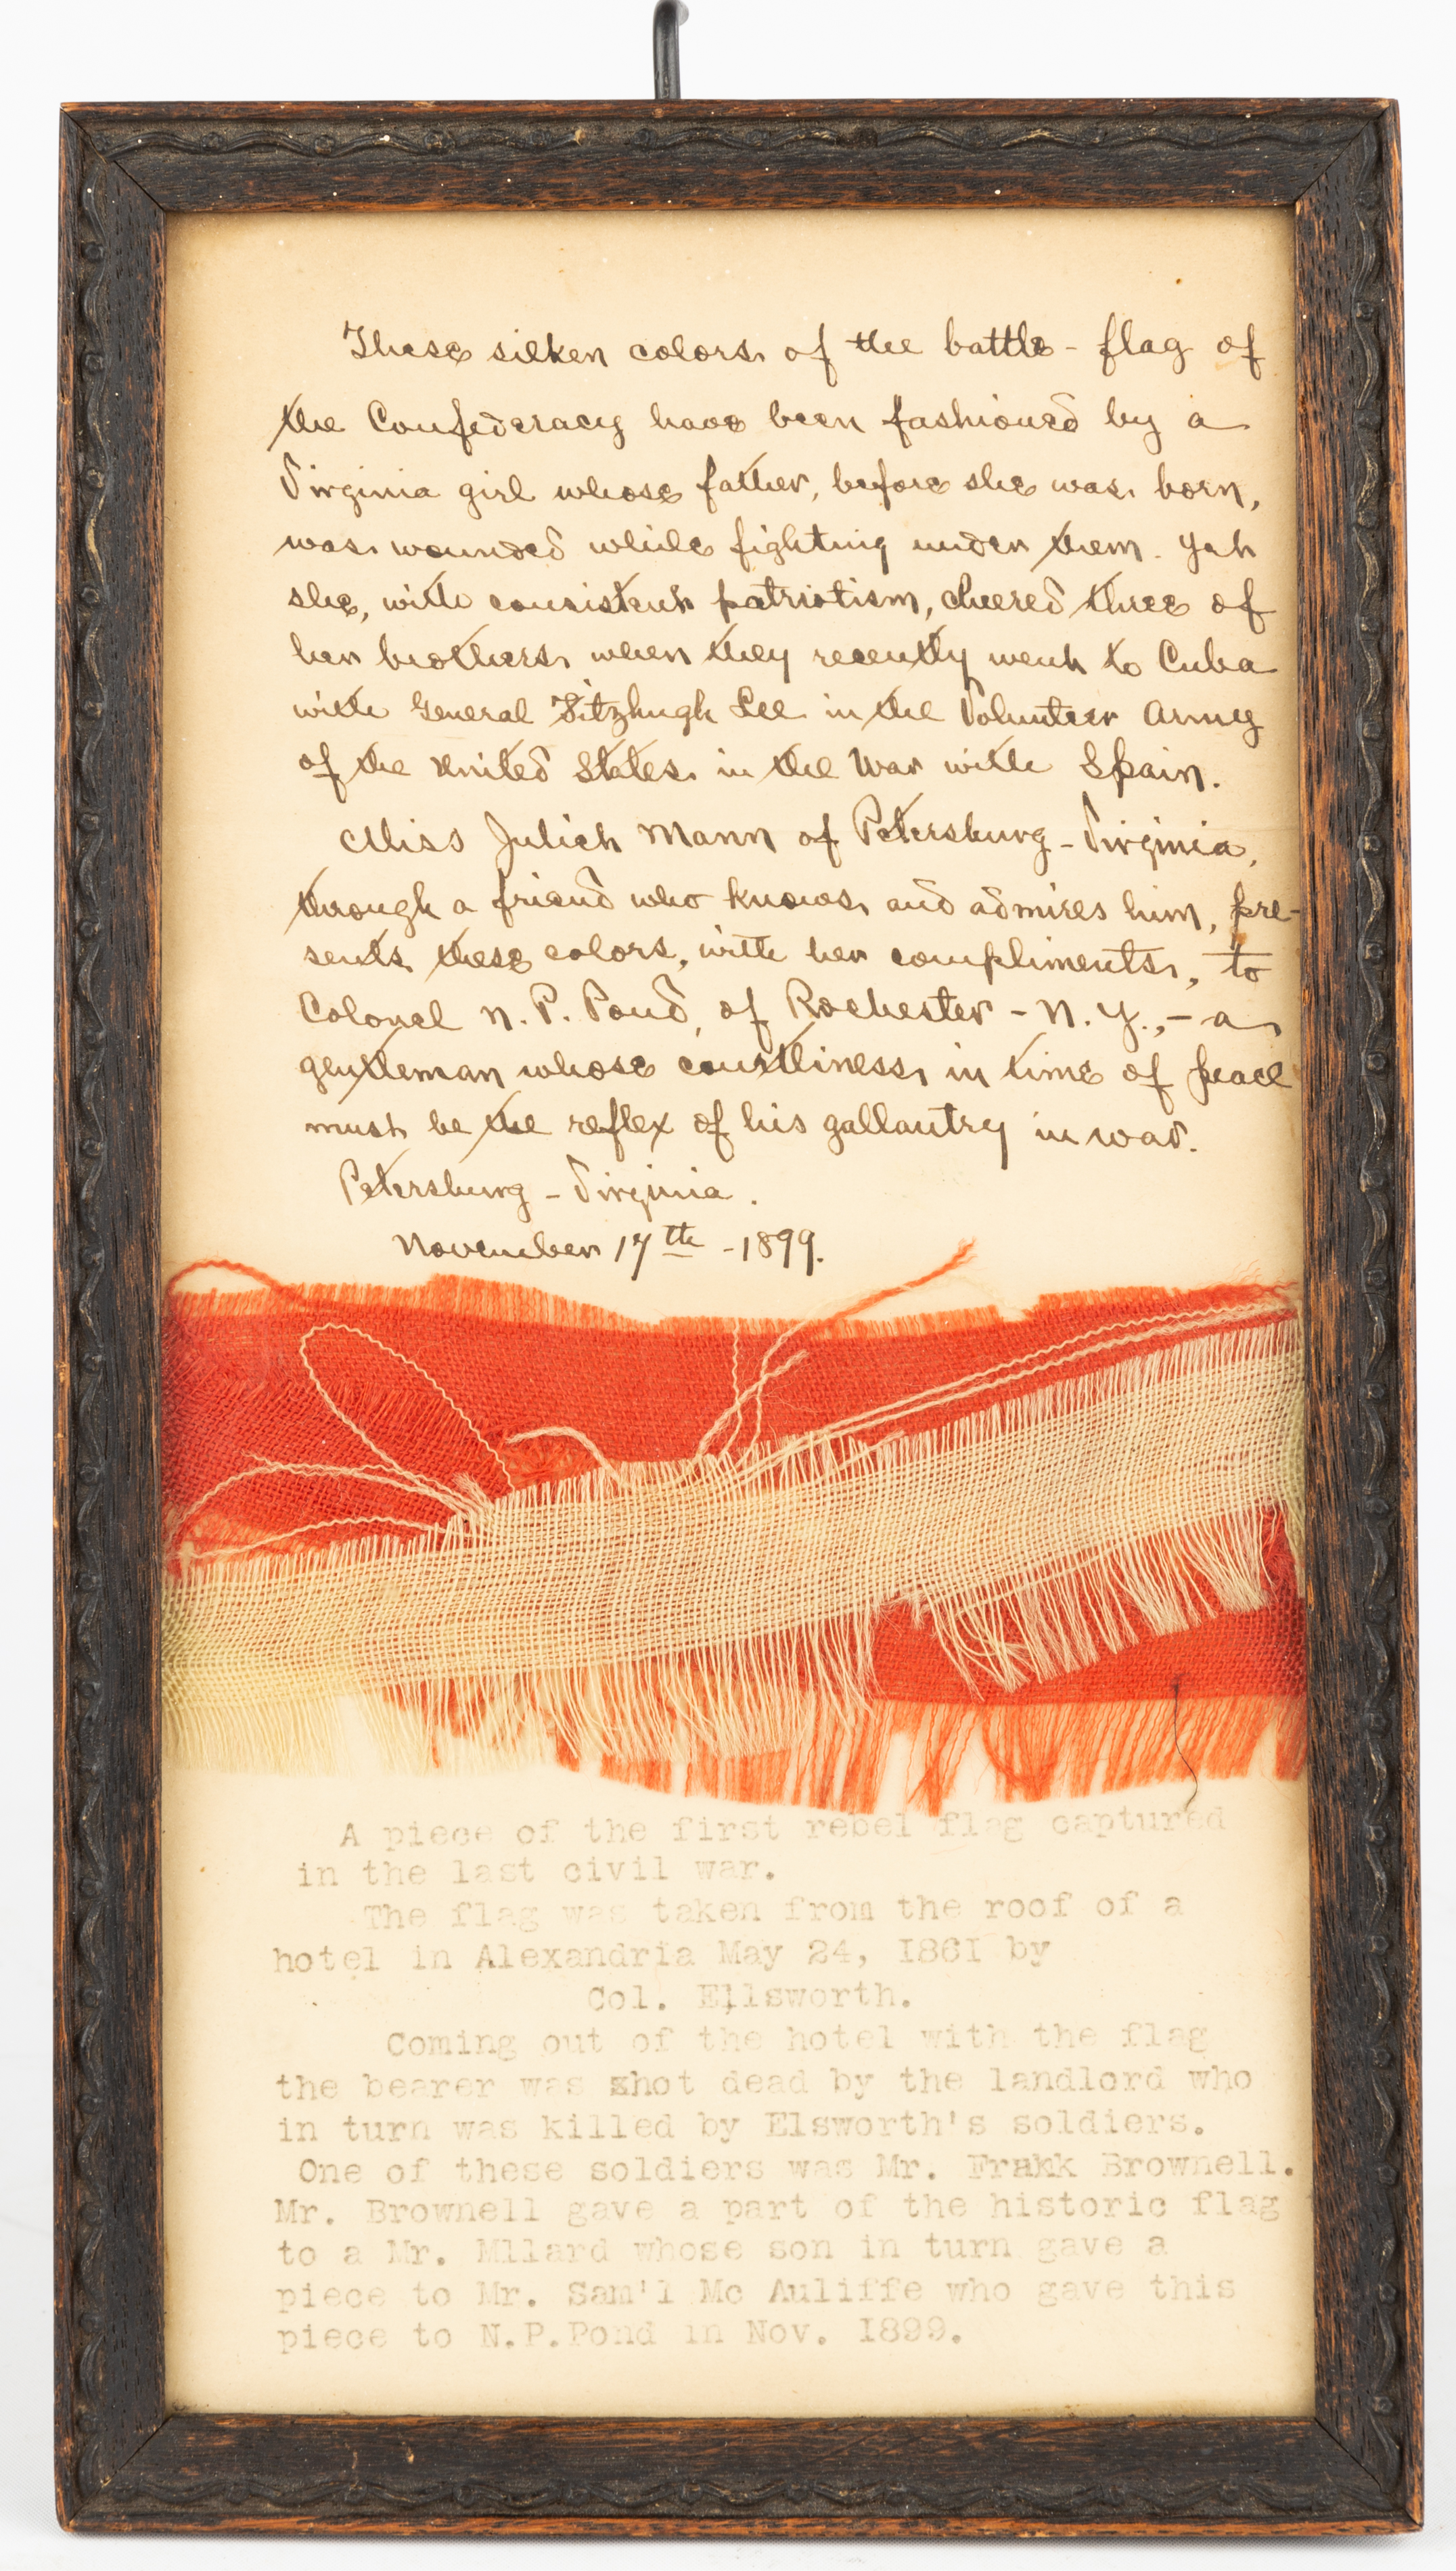 These silken colors of the battle-flag of
the Confederacy have been fashioned by a
Virginia girl whose father, before she was born,
was wounded while fighting under them. Yet
she, with consistent patriotism, cheered three of
her brothers when they recently went to Cuba
with General Fitzhugh Lee in the Volunteer Army
of the United States in the War with Spain.
Miss Juliet Mann of Petersburg - Virginia,
through a friend who knows and admires him, pre-
sents these colors, with her compliments, to
Colonel N. P. Pond, of Rochester - N. Y., - a
gentleman whose courtliness in time of peace
must be the reflex of his gallantry in war.
Petersburg - Virginia.
November 17th - 1899.
A piece of the first rebel flag captured
in the last civil war.
The flag was taken from the roof of a
hotel in Alexandria May 24, I86I by
Col. Ellsworth.
Coming out of the hotel with the flag
the bearer was shot dead by the landlord who
in turn was killed by Elsworth's soldiers.
One of these soldiers was Mr. Frank Brownell.
Mr. Brownell gave a part of the historic flag
to a Mr. Mllard whose son in turn gave a
piece to Mr. Sam'l Mc Auliffe who gave this
piece to N.P.Pond in Nov. I899.